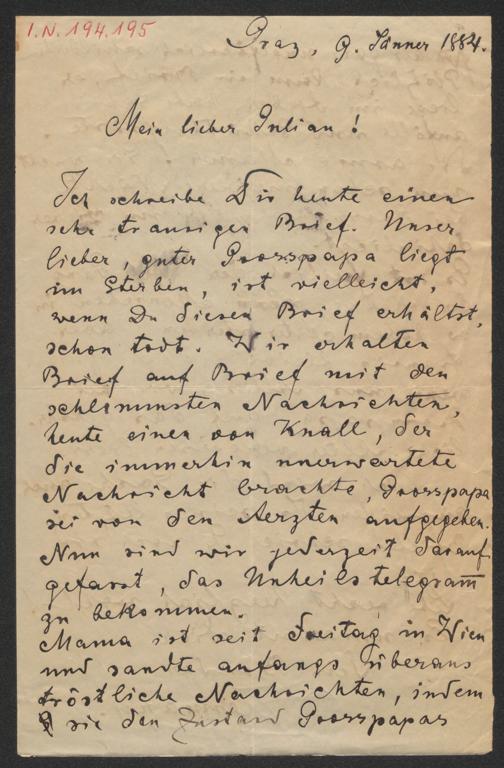 I.N. 194.195
Graz, 9. Jänner 1884.
Mein lieber Julian!
Ich schreibe Dir heute einen
sehr traurigen Brief. Unser
lieber, guter Grosspapa liegt
im Sterben, ist vielleicht,
wenn Du diesen Brief erhältst,
schon todt. Wir erhalten
Brief auf Brief mit den
schlimmsten Nachrichten,
heute einen von Knall, der
die immerhin unerwartete
Nachricht brachte, Grosspapa
sei von den Aerzten aufgegeben.
Nun sind wir jederzeit darauf
gefasst, das Unheilstelegram̅
zu bekommen.
Mama ist seit Freitag in Wien
und sandte anfangs überaus
tröstliche Nachrichten, indem
sie den Zustand Grosspapas